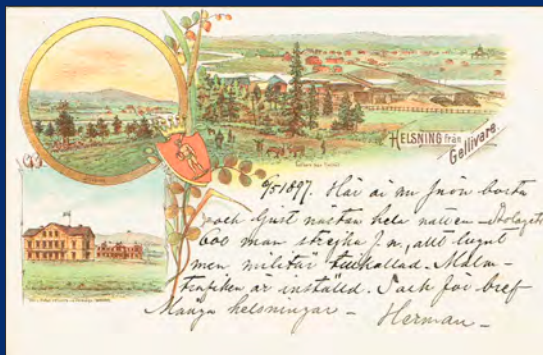 HELSNING från
Gellivare.
6/5 1897. Här är nu snön borta
och ljust nästan hela natten - Bolagets
600 man strejka f. n., allt lugnt
men militär tillkallad. Malm-
trafiken är inställd. Tack för bref
Många helsningar -
Herman -